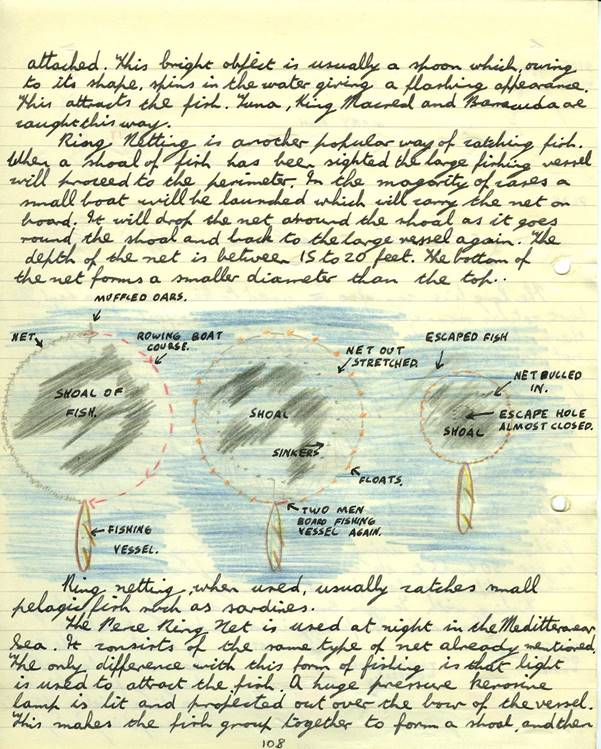 attached. This bright object is usually a spoon which, owing
to its shape, spins in the water giving a flashing appearance.
This attracts the fish. Tuna, King Macred and Baracuda are
caught this way.
Ring Netting is another popular way of catching fish.
When a shoal of fish has been sighted the large fishing vessel
will proceed to the perimeter. In the magority of cases a
small boat will be launched which will carry the net on
board. It will drop the net around the shoal as it goes
round the shoal and back to the large vessel again. The
depth of the net is between 15 to 20 feet. The bottom of
the net forms a smaller diameter than the top..
MUFFLED OARS.
NET
ROWING BOAT
COURSE.
SHOAL OF
FISH.
FISHING
VESSEL.
NET OUT
STRETCHED.
SHOAL
SINKERS
FLOATS.
TWO MEN
BOARD FISHING
VESSEL AGAIN.
ESCAPED FISH
NET PULLED
IN.
ESCAPE HOLE
ALMOST CLOSED.
SHOAL
Ring netting, when used, usually catches small
pelagic fish such as sardines.
The Pere Ring Net is used at night in the Meditteranean
Sea. It consists of the same type of net already mentioned.
The only difference with this form of fishing is that light
is used to attract the fish. A huge pressure kerosine
lamp is lit and projected out over the bow of the vessel.
This makes the fish group together to form a shoal, and then
108